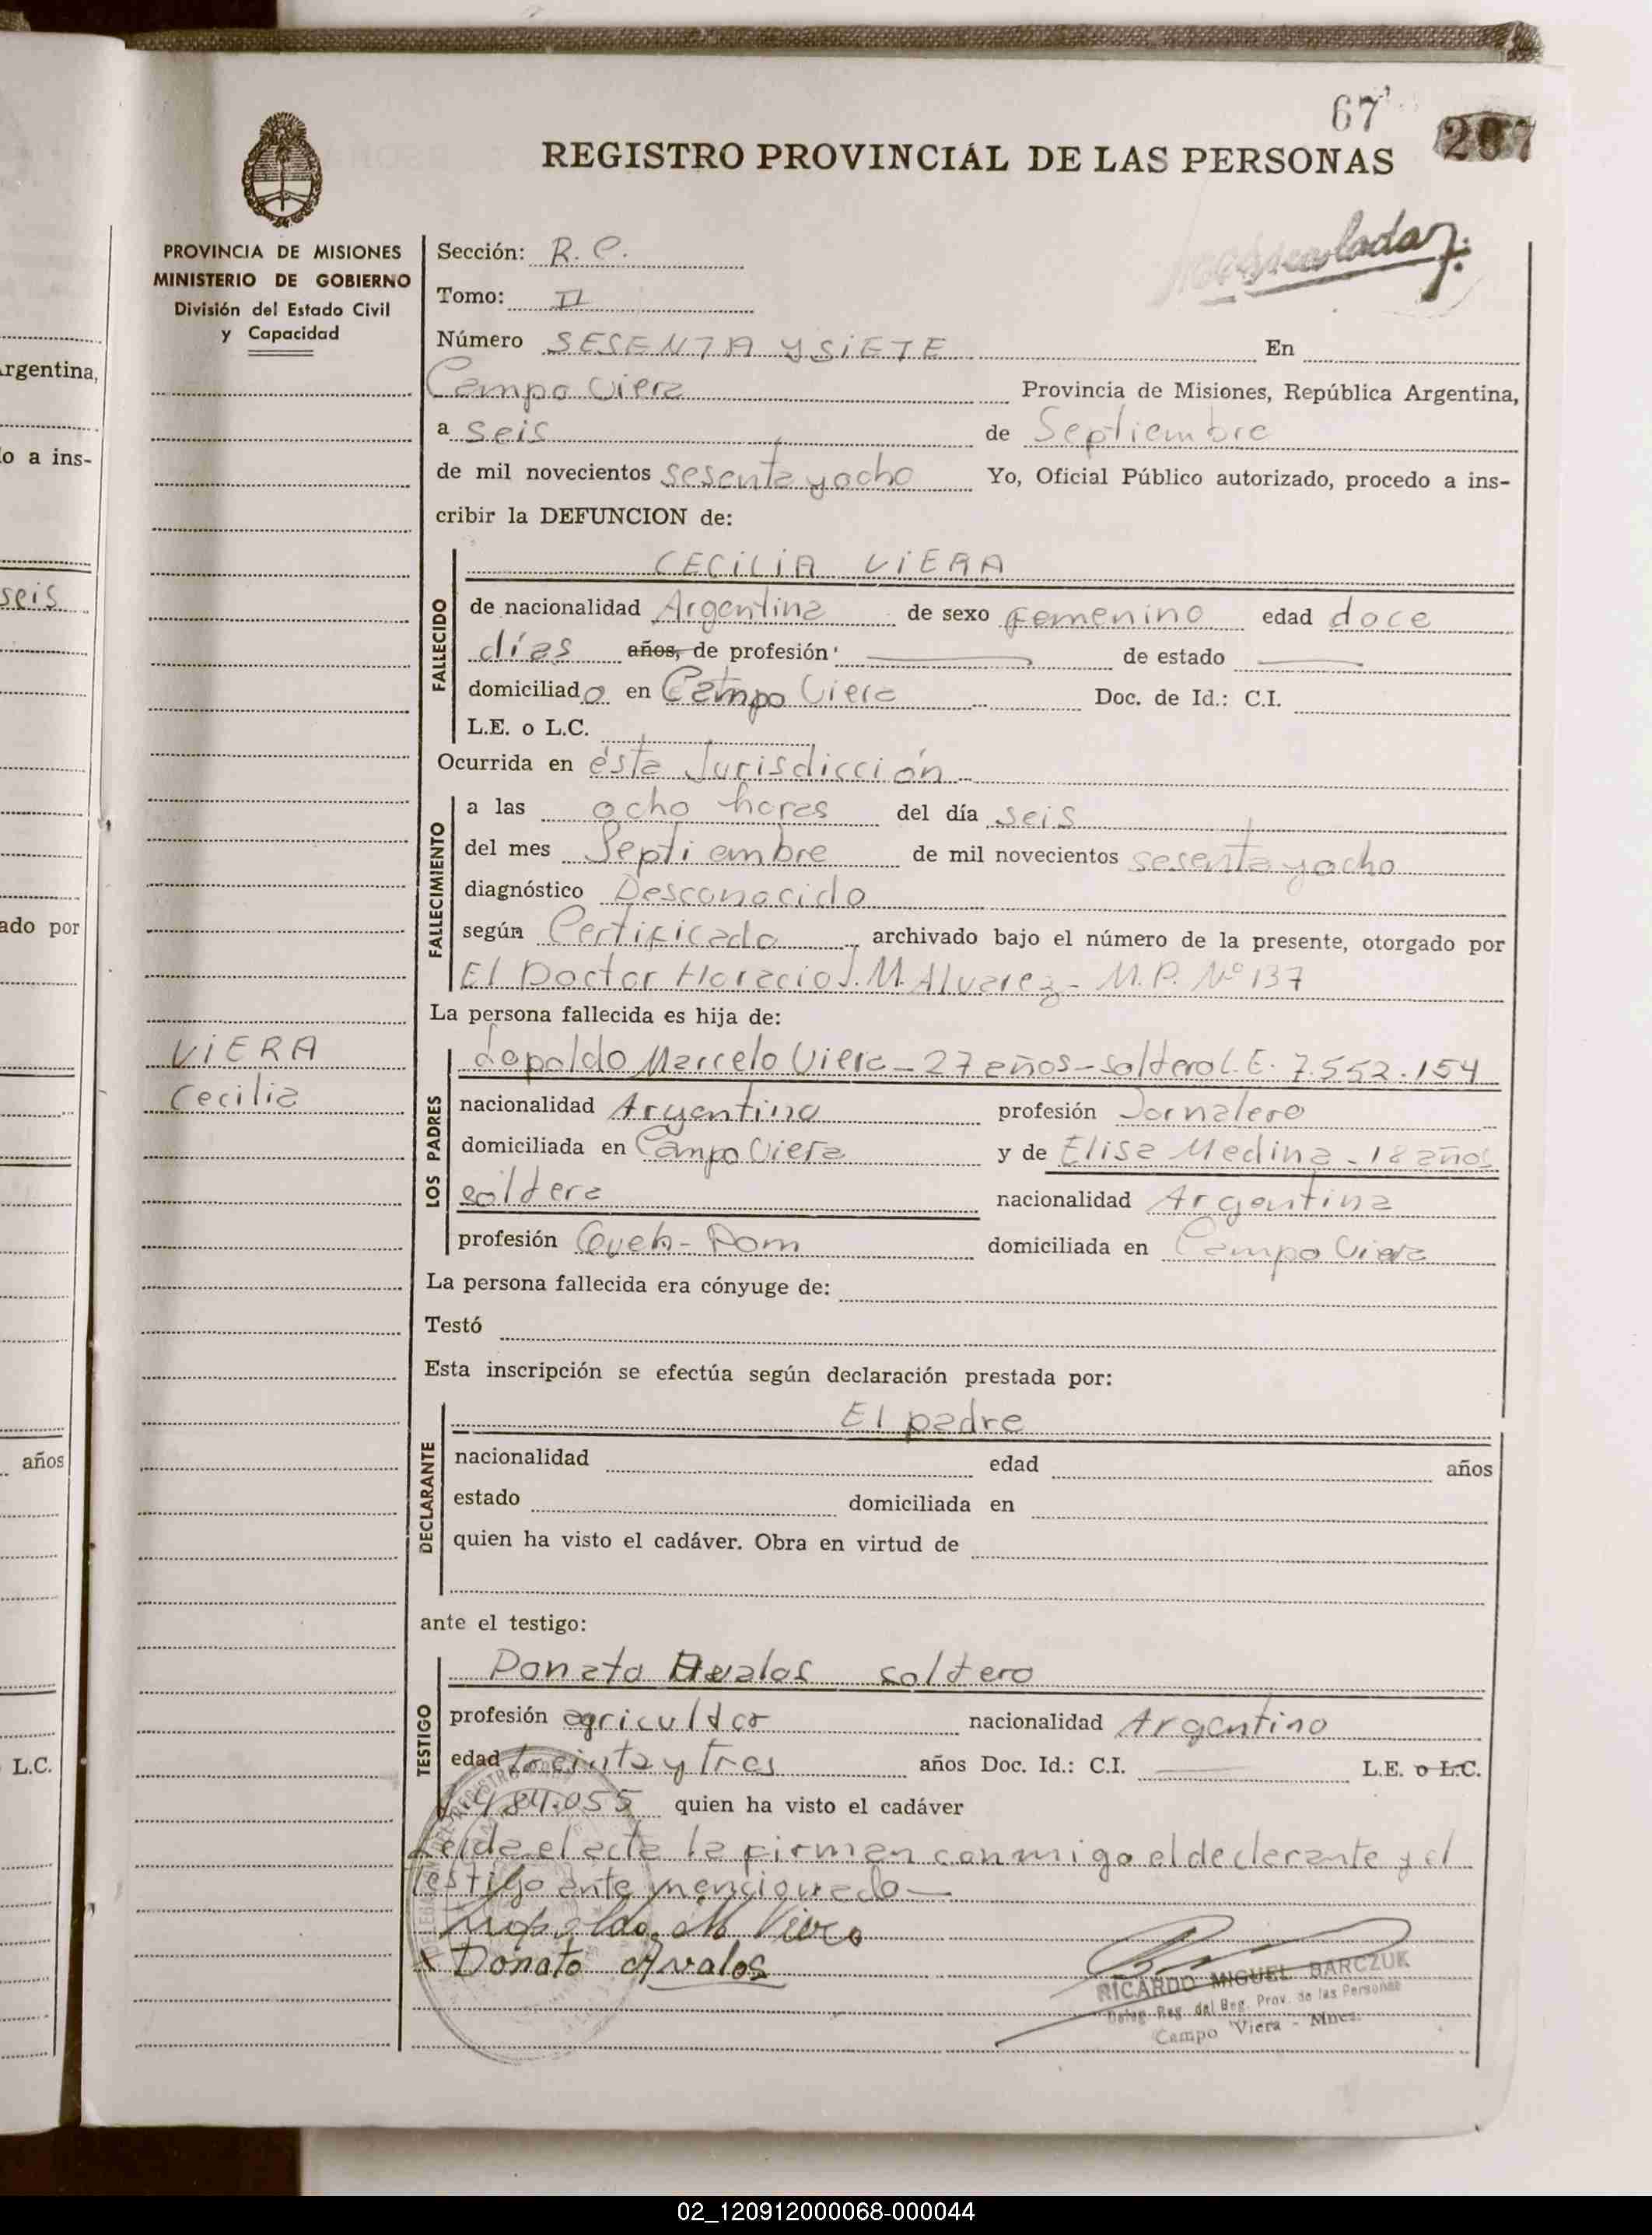 67
207
REGISTRO PROVINCIAL DE LAS PERSONAS
PROVINCIA DE MISIONES
MINISTERIO DE GOBIERNO
División del Estado Civil
y Capacidad
Sección: R. C.
Tomo: II
Número SESENTA Y SIETE En
Campo Viera Provincia de Misiones, República Argentina,
a seis de Septiembre
de mil novecientos sesenta y ocho Yo, Oficial Público autorizado, procedo a ins-
cribir la DEFUNCION de:
FALLECIDO
CECILIA VIERA
de nacionalidad Argentina de sexo femenino edad doce
días años, de profesión de estado
domiciliado en Campo Viera Doc. de Id.: C.I.
L.E. o L.C.
Ocurrida en ésta Jurisdicción
FALLECIMIENTO
a las ocho horas del día seis
del mes Septiembre de mil novecientos sesenta y ocho
diagnóstico Desconocido
según Certificado archivado bajo el número de la presente, otorgado por
El Doctor Horacio J. M. Alvarez - M. P. Nº 137
La persona fallecida es hija de:
VIERA
Cecilia
LOS PADRES
Lepoldo Marcelo Viera - 27 años - soltero L.E. 7.552.154
nacionalidad Argentino profesión Jornalero
domiciliada en Campo Viera y de Elisa Medina - 18 años
soltera nacionalidad Argentina
profesión Queh-Dom domiciliada en Campo Viera
La persona fallecida era cónyuge de:
Testó
Esta inscripción se efectúa según declaración prestada por:
DECLARANTE
El padre
nacionalidad edad años
estado domiciliada en
quien ha visto el cadáver. Obra en virtud de
ante el testigo:
TESTIGO
Donato Avalos soltero
profesión agricultor nacionalidad Argentino
edad treinta y tres años Doc. Id.: C.I. L.E. o L.C.
484.055 quien ha visto el cadáver
Leida el acta la firman conmigo el declarante y el
testigo ante mencionado
Donato Avalos
RICARDO MIGUEL BARCZUK
Deleg. Reg. del Reg. Prov. de las Personas
Campo Viera - Mnes.
rgentina,
o a ins-
seis
ado por
años
L.C.
02_120912000068-000044